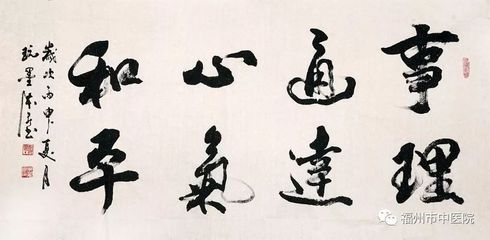 事理
通達
心氣
和平
歲次丙申夏月
玩墨
福州市中医院